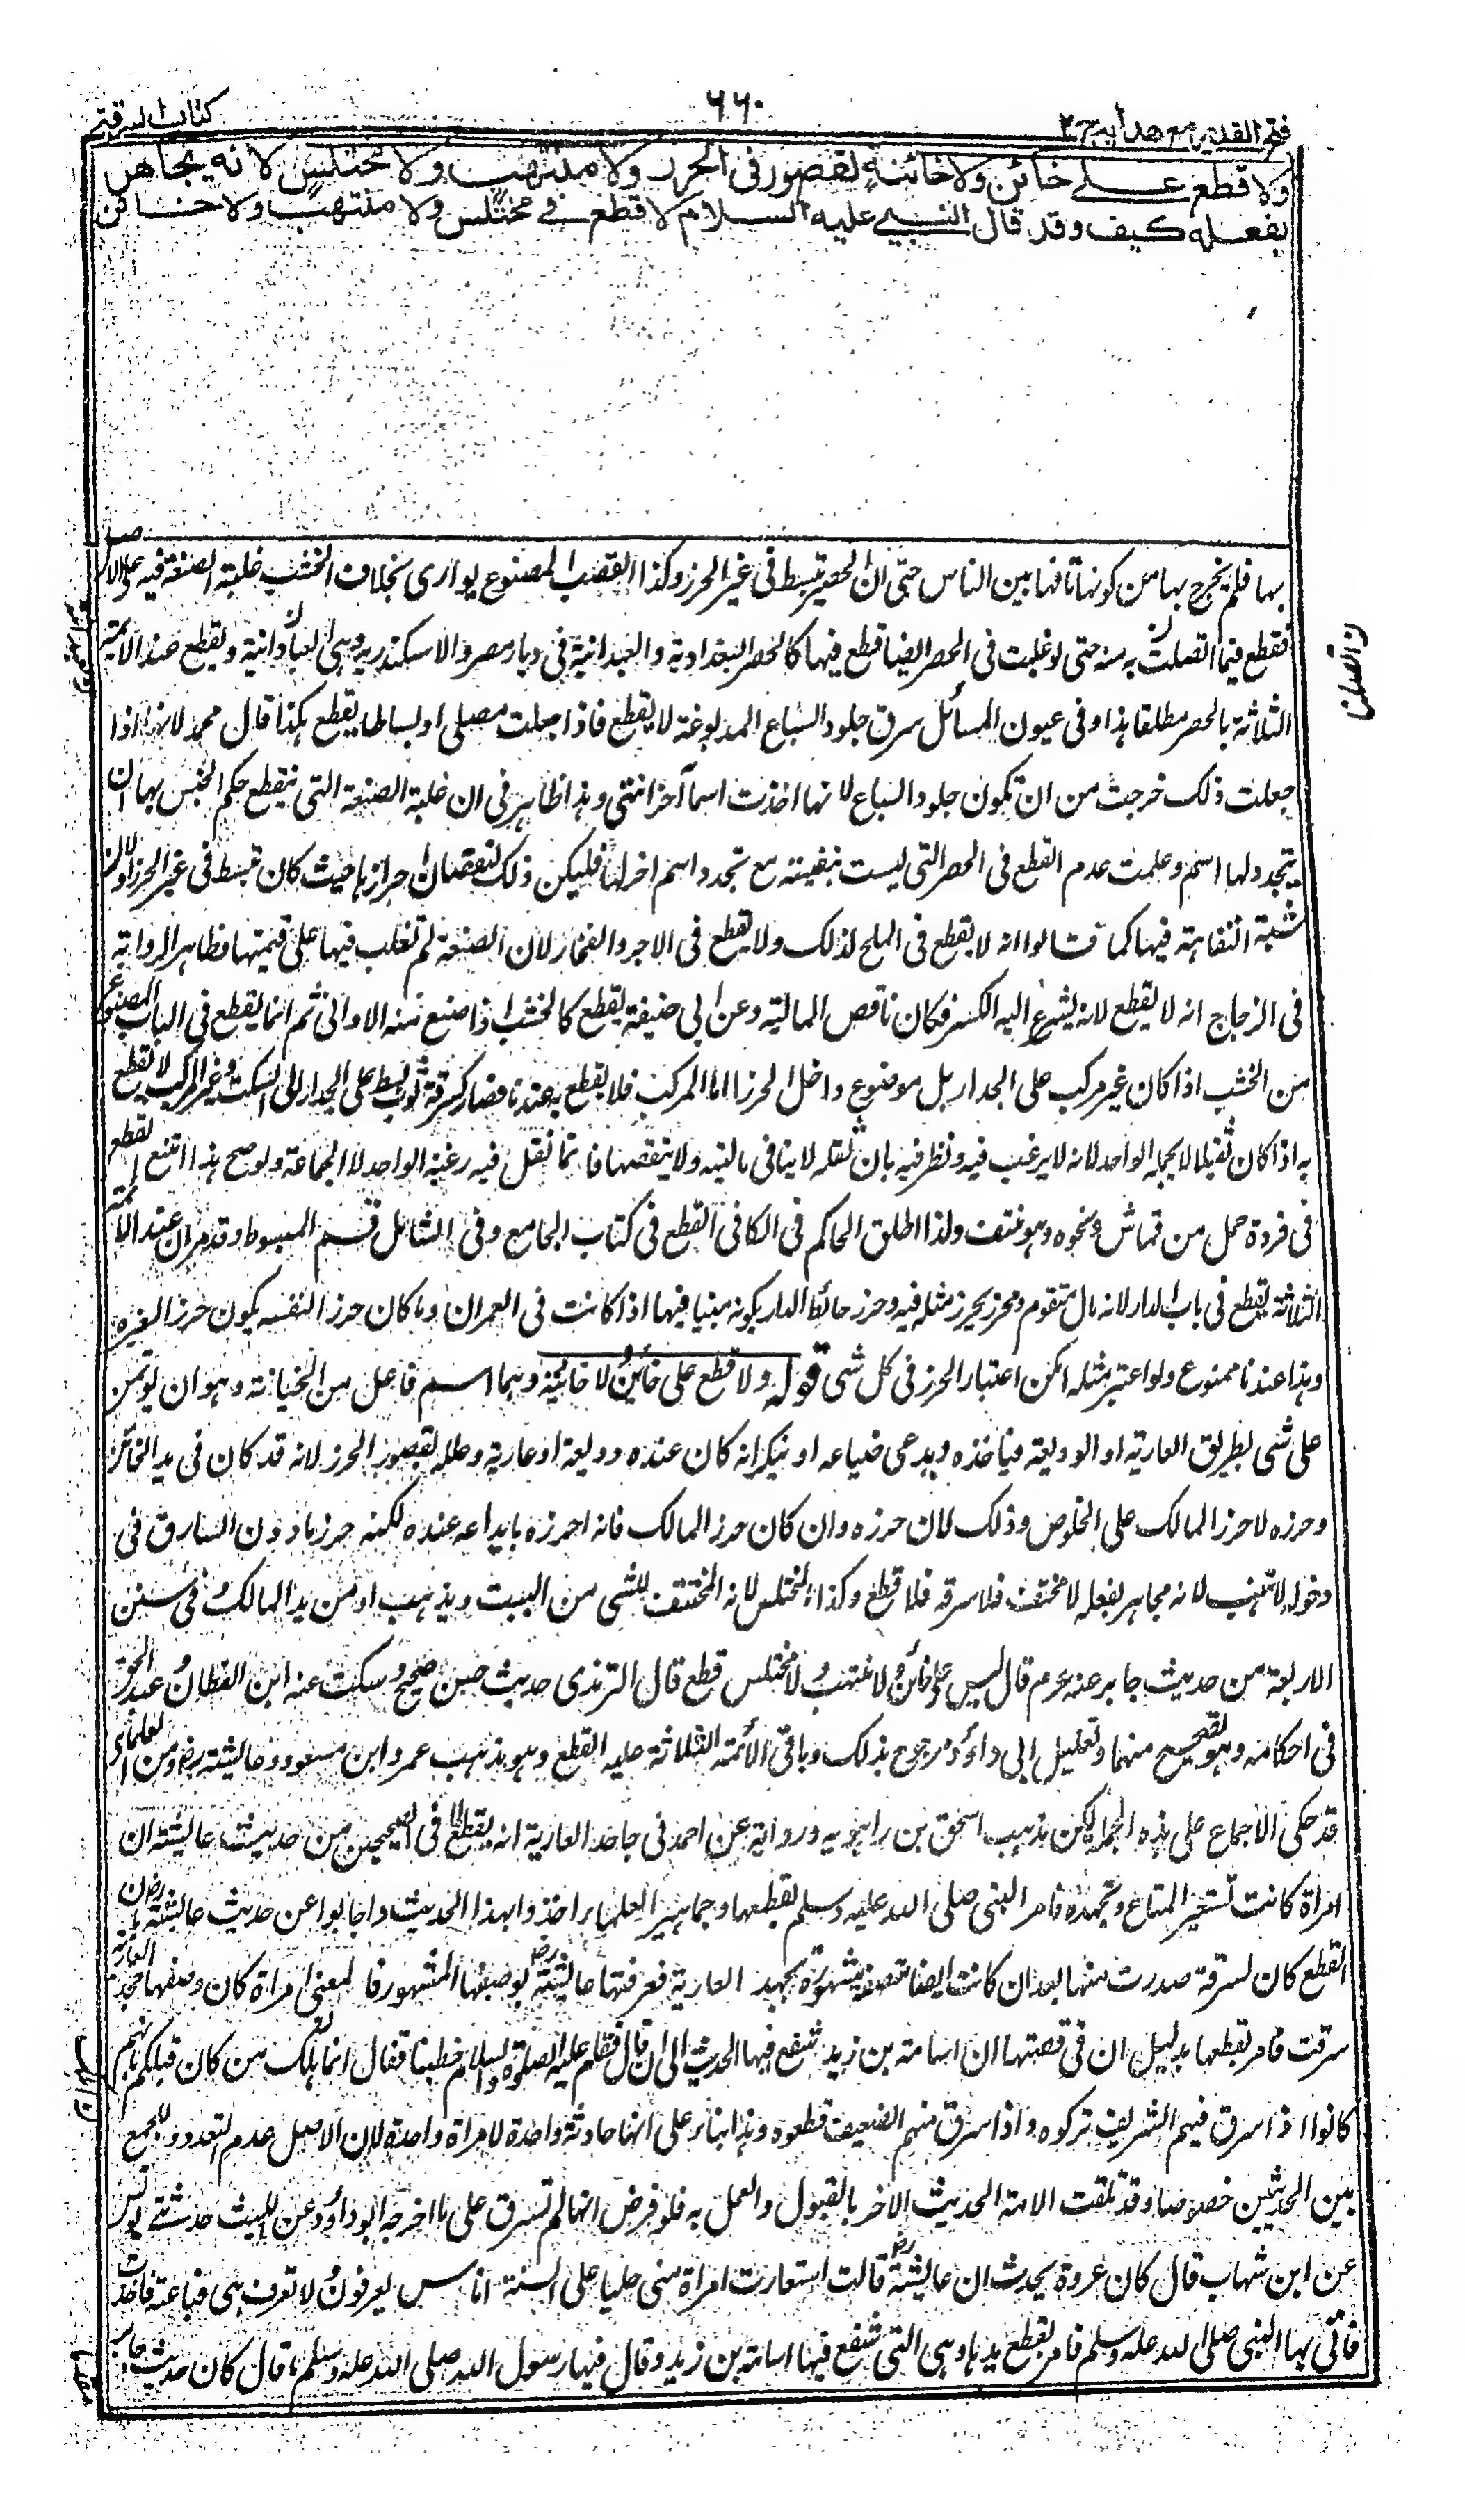 فتح القدير مع هدايه ج ٢
٦٦٠
كتاب السرقة
ولا قطع على خائن ولا خائنة لقصور في الحرز ولا منتهب ولا مختلس لانه يجاهر
بفعله كيف وقد قال النبي عليه السلام لا قطع في مختلس ولا منتهب ولا خائن
بها فلم يخرج بها من كونها تافها بين الناس حتى ان الحصير تبسط في غير الحرز وكذا القصب المصنوع بوارى بخلاف الخشب غلبة الصنعة فيه على الاصل
فقطع فيما اتصلت به منه حتى لو غلبت في الحصر ايضا قطع فيها كالحصر البغدادية والعبدانية في ديار مصر والاسكندرية وهى العبادانية ويقطع عند الائمة
الثلاثة بالحصر مطلقا هذا وفى عيون المسائل سرق جلود السباع المدبوغة لا يقطع فاذا جعلت مصلى او بساطا يقطع هكذا قال محمد لانها اذا
جعلت ذلك خرجت من ان تكون جلود السباع لانها اخذت اسما آخر انتهى وهذا ظاهر فى ان غلبة الصنعة التى ينقطع حكم الجنس بها ان
يتجدد لها اسم وعلمت عدم القطع فى الحصر التى ليست بنفيسة مع تجدد اسم اخر لها فليكن ذلك لنقصان احرازها حيث كان تبسط فى غير الحرز اولان
شبهة التفاهة فيها كما قالوا انه لا يقطع فى الملح لذلك ولا يقطع فى الاجر والفخار لان الصنعة لم تغلب فيها على قيمتها فظاهر الرواية
فى الزجاج انه لا يقطع لانه يشرع اليه الكسر فكان ناقص المالية وعن ابى حنيفة يقطع كالخشب اذا صنع منه الاوانى ثم انما يقطع فى الباب المصنوع
من الخشب اذا كان غير مركب على الجدار بل موضوع داخل الحرز اما المركب فلا يقطع به عندنا فصار كسرقة ثوب بسط على الجدار الى السكت وغير المركب لا يقطع
به اذا كان ثقيلا لا يحمله الواحد لانه لا يرغب فيه ونظر فيه بان ثقله لا ينافى ماليته ولا ينقصها فانما تقل فيه رغبة الواحد لا الجماعة ولو صح هذا امتنع القطع
فى فردة حمل من قماش ونحوه وهو منتف ولذا اطلق الحاكم فى الكافى القطع فى كتاب الجامع وفى الشامل قسم المبسوط وقد مر ان عند الائمة
الثلاثة يقطع فى باب الدار لانه مال متقوم ومحرز بحرز مثله فيه وحرز حائط الدار بكونه مبنيا فيها اذا كانت فى العمران وما كان حرز النفسه يكون حرزا لغيره
وهذا عندنا ممنوع ولو اعتبر مثله امكن اعتبار الحرز فى كل شى قوله ولا قطع على خائن ولا خائنة وهما اسم فاعل من الخيانة وهو ان يؤتمن
على شى بطريق العارية او الوديعة فياخذه ويدعى ضياعه او ينكر انه كان عنده وديعة او عارية وعلله بقصور الحرز لانه قد كان فى يد الخائن
وحرزه لا حرز المالك على الخلوص وذلك لان حرزه وان كان حرز المالك فانه احرزه بايداعه عنده لكنه حرز ماذون السارق فى
دخوله لا منتهب لانه مجاهر بفعله لا مختف فلا سرقه فلا قطع وكذا المختلس لانه المختطف للشى من البيت ويذهب او من يد المالك فى سنن
الاربعة من حديث جابر عنه عم قال ليس على خائن ولا منتهب ولا مختلس قطع قال الترمذى حديث حسن صحيح وسكت عنه ابن القطان وعبد الحق
فى احكامه وهو تصحيح منهما وتعليل ابى داؤد مرجوح بذلك وباقى الأئمة الثلاثة عليه القطع وهو مذهب عمر وابن مسعود وعائشة رض ومن العلماء
قد حكى الاجماع على هذه الجملة لكن مذهب اسحق بن راهويه ورواية عن احمد فى جاحد العارية انه يقطع لما فى الصحيحين من حديث عائشة ان
امرأة كانت تستعير المتاع وتجحده فامر النبى صلى الله عليه وسلم بقطعها وجماهير العلماء اخذوا بهذا الحديث واجابوا عن حديث عائشة رض بان
القطع كان لسرقة صدرت منها بعد ان كانت ايضا متصفة مشهورة بجحد العارية فعرفتها عائشة رض بوصفها المشهور فالمعنى امرأة كان وصفها جحد العارية
سرقت فامر بقطعها بدليل ان فى قصتها ان اسامة بن زيد شفع فيها الحديث الى ان قال فقام عليه الصلوة والسلام خطيبا فقال انما هلك من كان قبلكم بانهم
كانوا اذا سرق فيهم الشريف تركوه واذا سرق منهم الضعيف قطعوه وهذا بناء على انها حادثة واحدة لامرأة واحدة لان الاصل عدم التعدد وللجمع
بين الحديثين خصوصا وقد تلقت الامة الحديث الاخر بالقبول والعمل به فلو فرض انها لم تسرق على ما اخرجه ابو داؤد عن الليث حدثنى يونس
عن ابن شهاب قال كان عروة يحدث ان عائشة رض قالت استعارت امرأة منى حليا على السنة اناس يعرفون ولا تعرف هى فباعته فاخذت
فاتى بها النبى صلى الله عليه وسلم فامر بقطع يدها وهى التى شفع فيها اسامة بن زيد وقال فيها رسول الله صلى الله عليه وسلم ما قال كان حديث جابر
ن اتصلت